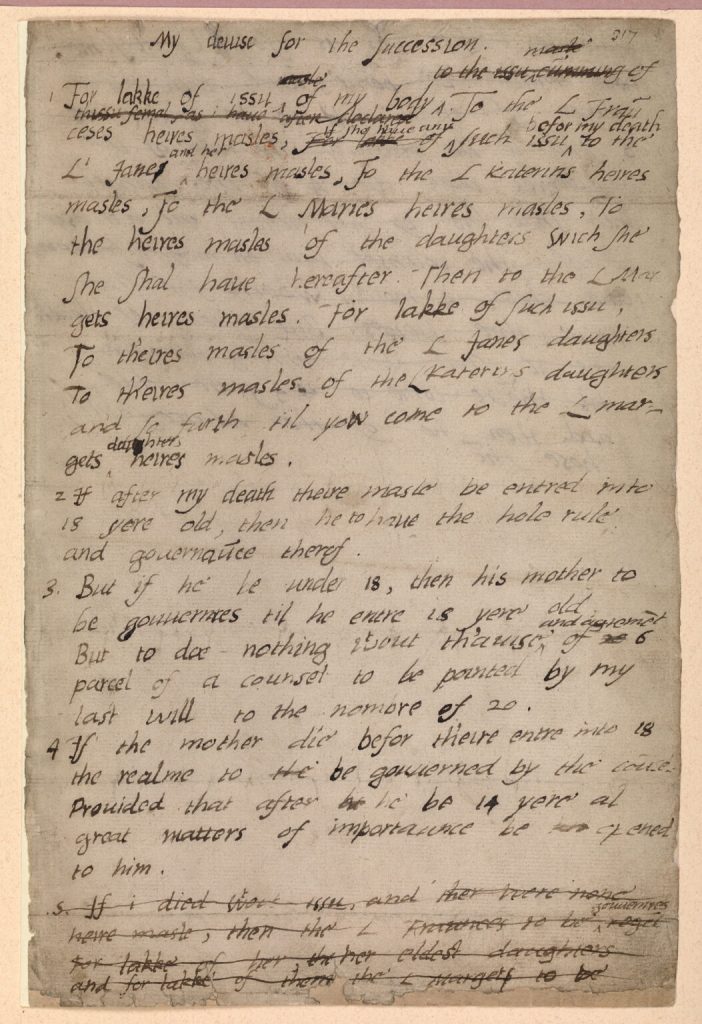 My deuise for the succession.
317
1 For lakke of issu masle of my body to the issu cumming of
thissu femal, as i haue after declared
To the L Fraun
ceses heires masles, For lakke of if she have any such issu befor my death to the
L' Janes and her heires masles, To the L Katerins heires
masles, To the L Maries heires masles, To
the heires masles of the daughters wich she
she shal haue hereafter. Then to the L Mar
gets heires masles. For lakke of such issu,
To th'eires masles of the L Janes daughters
To th'eires masles of the L Katerins daughters
and so forth til yow come to the L Mar-
gets daughters heires masles.
2 If after my death theire masle be entred into
18 yere old, then he to haue the hole rule
and gouernaūce therof.
3. But if he be under 18, then his mother to
be gouuernres til he entre 18 yere old
But to doe nothing wtout th'auise and agremēt of 6
parcel of a counsel to be pointed by my
last will to the nombre of 20.
4 If the mother die befor th'eire entre into 18
the realme to the be gouuerned by the coūs
Prouided that after he be 14 yere al
great matters of importaunce be opened
to him.
5. If i died wtout issu, and ther were none
heire masle, then the L Fraunces to be gouuernres regēt
For lakke of her, her eldest daughters
and for lakke of them the L Marget to be